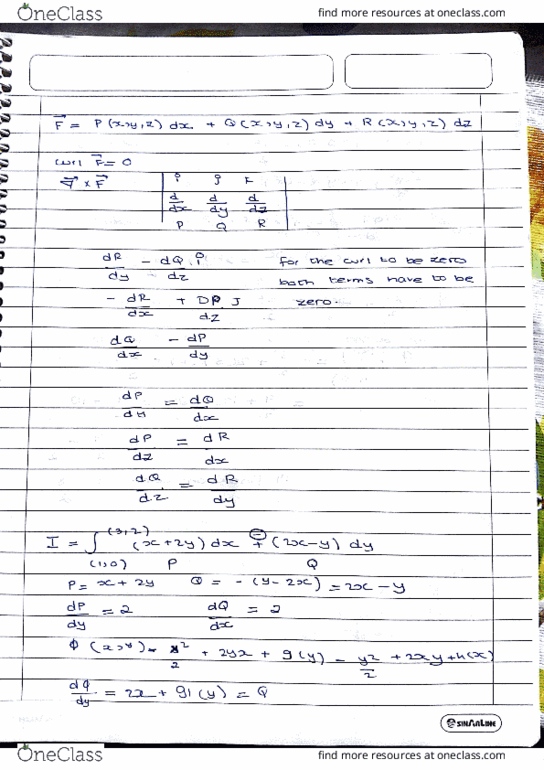 OneClass find more resources at oneclass.com
F⃗ = P(x,y,z) dx + Q(x,y,z) dy + R(x,y,z) dz
curl F⃗ = 0
∇⃗ × F⃗
d/dx d/dy d/dz
P Q R
dR/dy - dQ/dz i for the curl to be zero
both terms have to be
- dR/dx + DP/dz J zero.
dQ/dx - dP/dy
dP/dy = dQ/dx
dP/dz = dR/dx
dQ/dz = dR/dy
I = ∫ (1,0) (3,2) (x+2y) dx + (2x-y) dy
P Q
P = x + 2y Q = -(y-2x) = 2x-y
dP/dy = 2 dQ/dx = 2
ϕ(x,y) = x²/2 + 2yx + g(y) - y²/2 + 2xy + h(x)
dϕ/dy = 2x + g1(y) = Q
SINARLINE
OneClass find more resources at oneclass.com